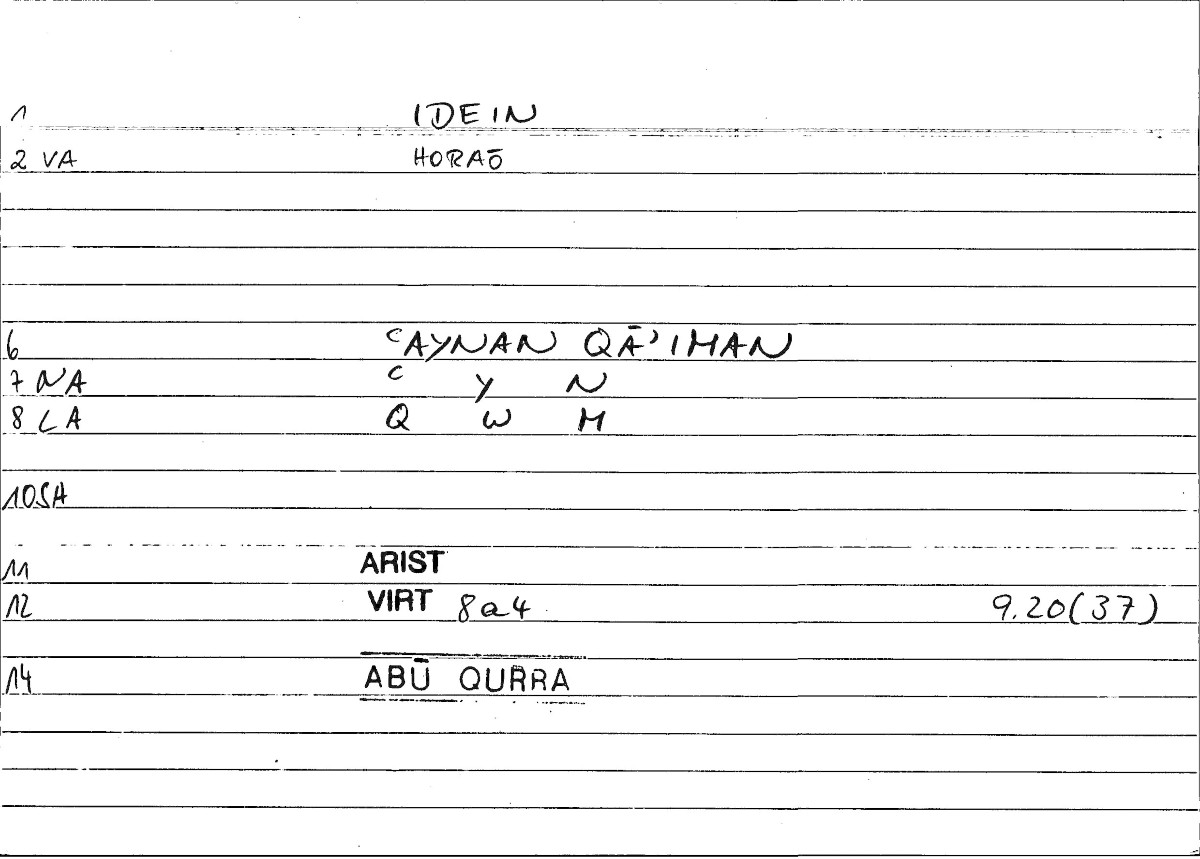 1 IDEIN
2 VA HORAŌ
6 ʿAYNAN QĀʾIMAN
7 NA ʿ Y N
8 LA Q W M
10 SA
11 ARIST
12 VIRT 8a4 9.20(37)
14 ABŪ QURRA